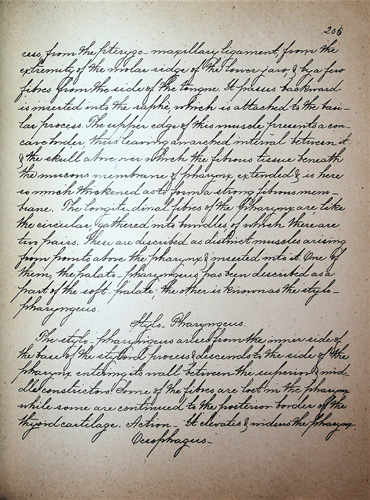 206
cess, from the pterygo-maxillary ligament, from the
extremity of the molar ridge of the lower jaw & by a few
fibres from the side of the tongue. It passes backward
& is inserted into the raphé, which is attached to the basi-
lar process. The upper edge of this muscle presents a con-
cave border, thus leaving an arched interval between it
& the skull above over which the fibrous tissue beneath
the mucous membrane of pharynx extended & is here
so much thickened as to form a strong fibrous mem-
brane. The longitudinal fibres of the pharynx are like
the circular gathered into bundles of which there are
two pairs. These are described as distinct muscles arising
from points above the pharynx & inserted into it. One of
them, the palato-pharyngeus, has been described as a
part of the soft palate: the other is known as the stylo-
pharyngeus.
Stylo-Pharyngeus.
The stylo-pharyngeus arises from the inner side of
the base of the styloid process & descends to the side of the
pharynx entering its wall between the superior & mid-
dle constrictors. Some of the fibres are lost in the pharynx
while some are continued to the posterior border of the
thyroid cartilage. Action - It elevates & widens the pharynx.
Oesophagus-